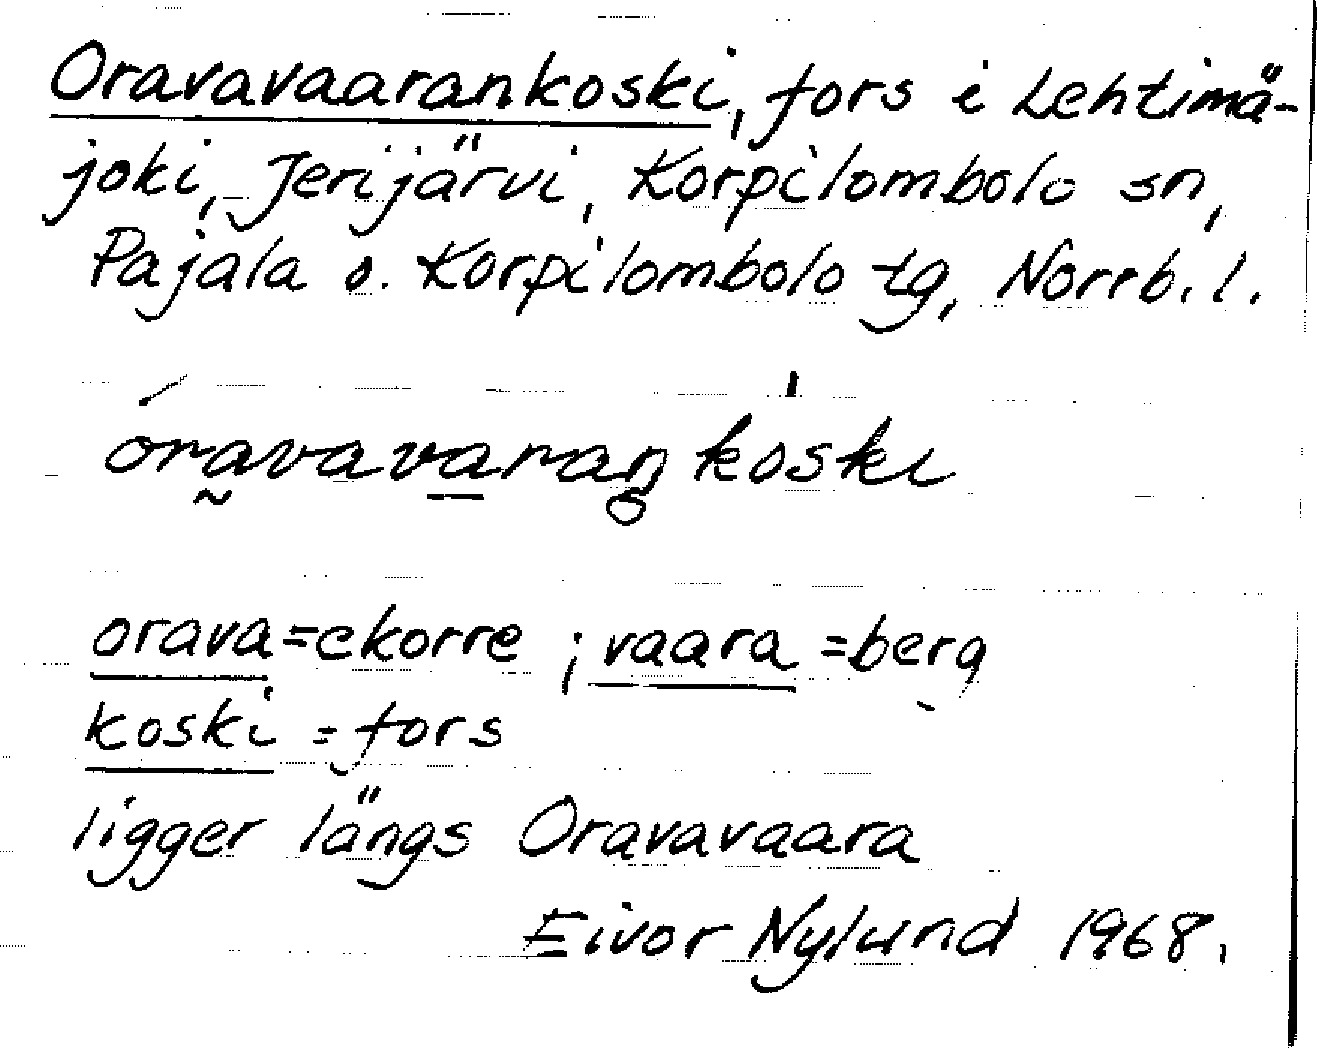 Oravavaarankoski, fors i Lehtimä-
joki, Jerijärvi, Korpilombolo sn,
Pajala o. Korpilombolo tg, Norrb. l.
óravavaraŋkòski
orava=ekorre ; vaara =berg
koski = fors
ligger längs Oravavaara
Eivor Nylund 1968.